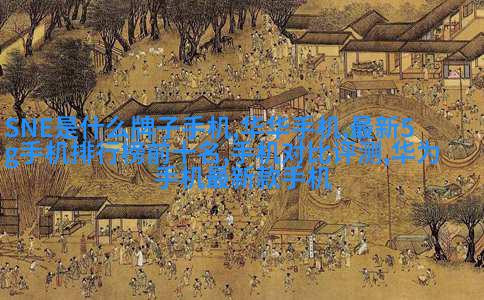 SNE是什么牌子手机,华华手机,最新5
g手机排行榜前十名,手机对比评测,华为
手机最新款手机